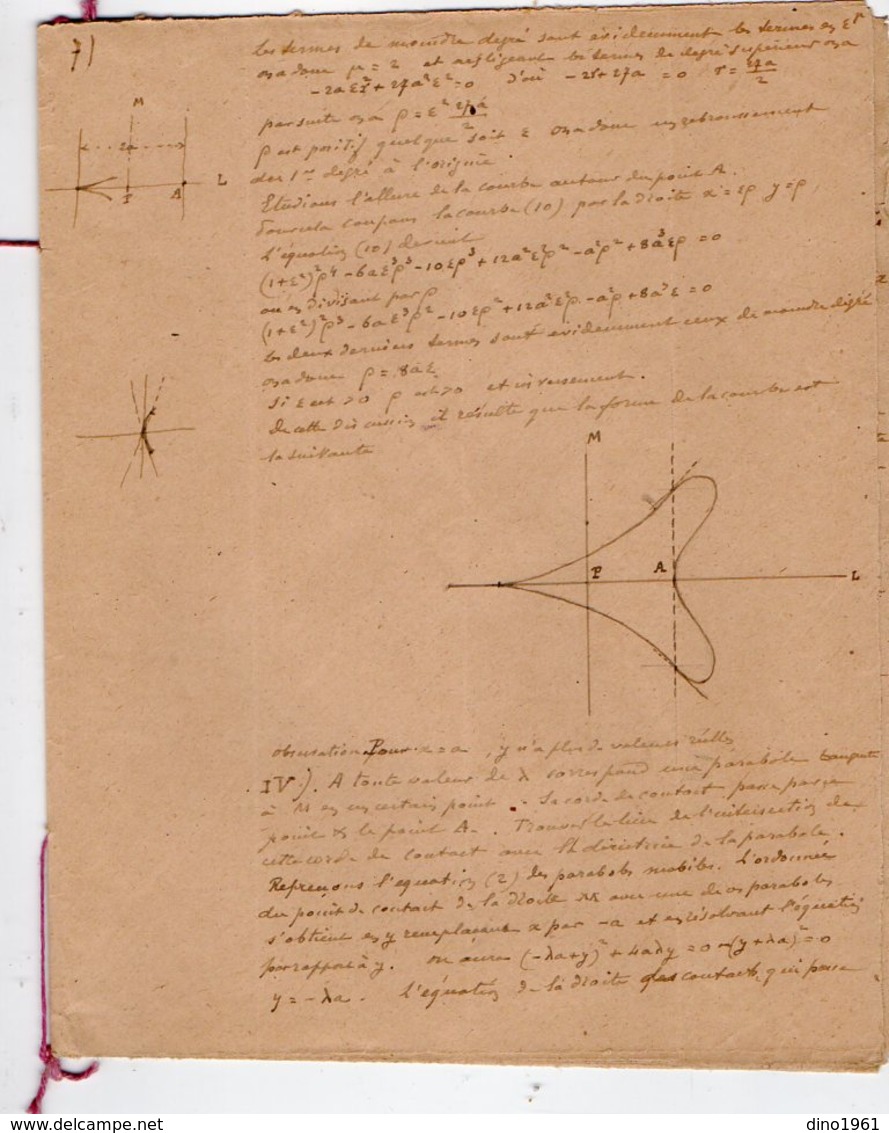 71
les termes de moindre degré sont évidemment les termes en ε^r
on a donc μ = 2 et en négligeant les termes de degré supérieur on a
- 2aε²r + 27a²ε² = 0 d'où - 2r + 27a = 0 r = 27a/2
par suite on a ρ = ε² 27a/2
ρ est positif quelque soit ε on a donc un rebroussement
du 1er degré à l'origine.
M
2a
P A L
Etudions l'allure de la courbe autour du point A.
Pour cela coupons la courbe (10) par la droite x = ερ y = ρ,
L'équation (10) devient
(1+ε²)²ρ⁴ - 6aε³ρ³ - 10ερ³ + 12a²ε²ρ² - a²ρ² + 8a³ερ = 0
ou en divisant par ρ
(1+ε²)²ρ³ - 6aε³ρ² - 10ερ² + 12a²ε²ρ - a²ρ + 8a³ε = 0
les deux derniers termes sont évidemment ceux de moindre degré
on a donc ρ = 8aε
Si ε est >0 ρ est >0 et inversement.
De cette discussion il résulte que la forme de la courbe est
la suivante
M
P A L
observation. Pour x = a, y n'a plus de valeurs réelles
IV). A toute valeur de λ correspond une parabole tangente
à M en un certain point. La corde de contact passe par ce
point & le point A. Trouver le lieu de l'intersection de
cette corde de contact avec la directrice de la parabole.
Reprenons l'equation (2) des paraboles mobiles. L'ordonnée
du point de contact de la droite M avec une de ces paraboles
s'obtient en y remplaçant x par -a et en résolvant l'équation
par rapport à y. On aura (-λa+y)² + 4aλy = 0 (y+λa)² = 0
y = -λa. L'équation de la droite des contacts qui passe
dino1961